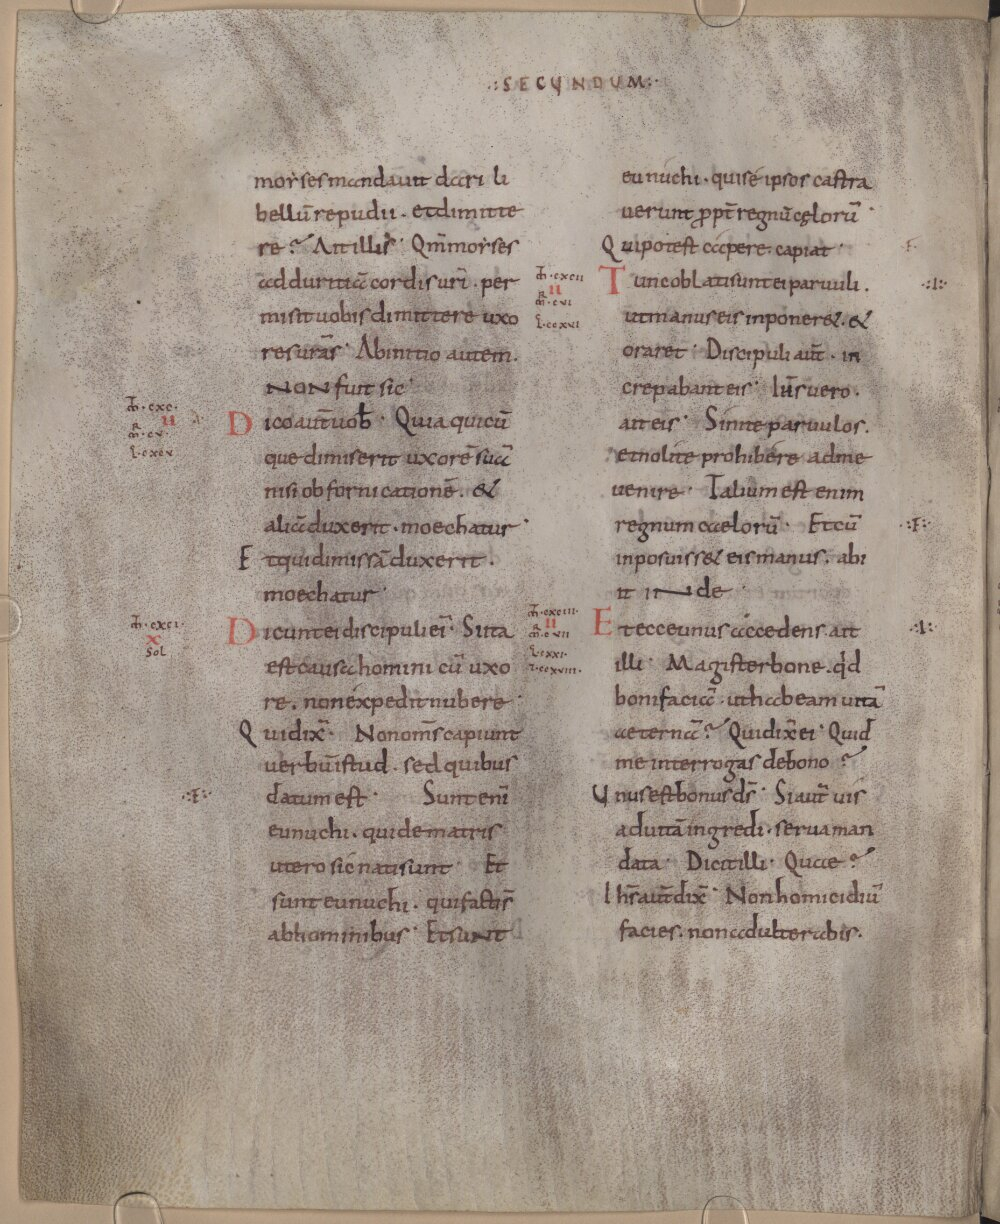 ·:SECUNDUM:·
morses mandauit dari li
bellū repudii · et dimitte
re ? At illis · Qm̄ morses
ad duritiā cordis urī · per
misit uobis dimittere uxo
res urās · Ab initio autem ·
NON fuit sic ·
m̄ · cxc ·
II
m̄r · cv ·
l · cxcv
Dico aūt uob̄ · Quia quicū
que dimiserit uxorē suā
nisi ob fornicationē · &
aliā duxerit · moechatur ·
Et qui dimissā duxerit ·
moechatur ·
m̄ · cxci ·
X
sol
Dicunt ei discipuli eī · Si ita
est causa homini cū uxo
re · non expedit nubere ·
Qui dix̄ · Non om̄s capiunt
uerbū istud · sed quibus
·:F:·
datum est · Sunt enī
eunuchi · qui de matris
utero sic nati sunt · Et
sunt eunuchi · qui facti s̄
ab hominibus · Et suNt
eunuchi · qui se ipsos castra
uerunt ꝓpt̄ regnū cęlorū ·
Qui potest capere · capiat ·
F
m̄ · cxcii
II
m̄r · cvi
l · ccxvi
Tunc oblati sunt ei paruuli ·
·:I:·
ut manus eis inponer& · &
oraret · Discipuli aūt · in
crepabant eis · Ih̄s uero ·
ait eis · Sinite paruulos ·
et nolite prohibere ad me
uenire · Talium est enim
regnum caelorū · Et cū
·:F:·
inposuiss& eis manus · abi
it iNde ·
m̄ · cxciii ·
II
m̄r · cvii
l · cxxi ·
l · ccxviii ·
Et ecce unus accedens · ait
·:I:·
illi · Magister bone · qd̄
boni faciā · ut habeam uitā
aeternā ? Qui dix̄ ei · Quid
me interrogas de bono ?
Unus est bonus d̄s · Si aūt uis
ad uitā ingredi · serua man
data · Dicit illi · Quae ?
Ih̄s aūt dix̄ · Non homicidiū
facies · non adulterabis ·